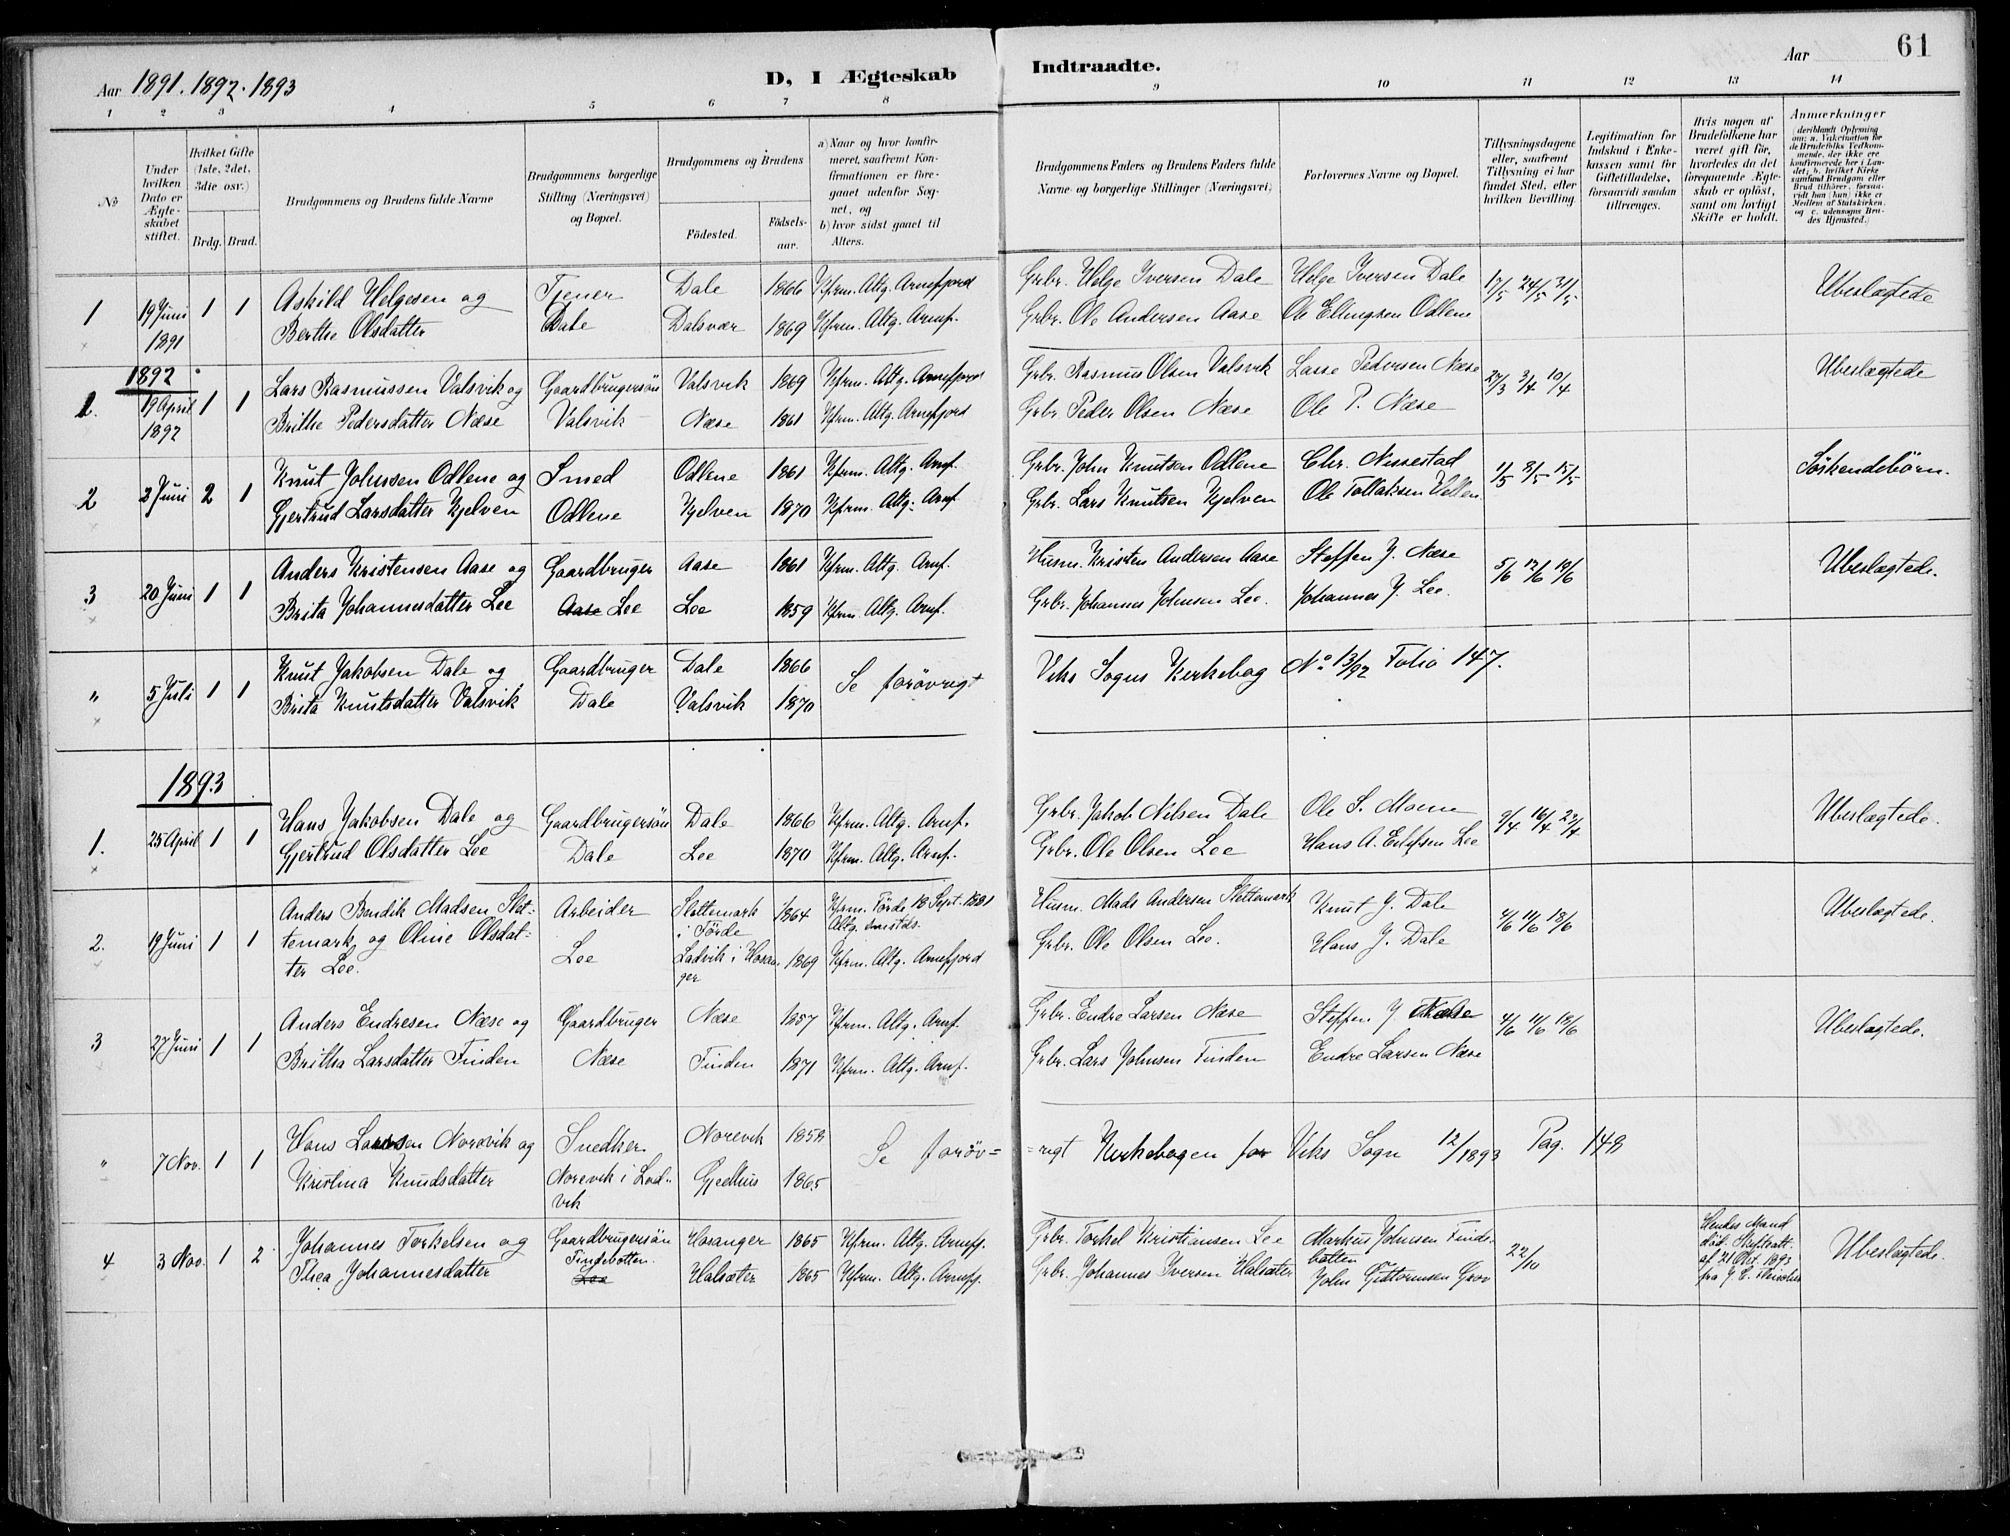 Aar 1891. 1892. 1893
D, I Ægteskab Indtraadte.
Aar 61
1 2 3 4 5 6 7 8 9 10 11 12 13 14
No
Under hvilken Dato er Ægteskabet stiftet.
Hvilket Gifte (1ste, 2det, 3die osv.)
Brdg. Brud.
Brudgommens og Brudens fulde Navne
Brudgommens borgerlige Stilling (Næringsvei) og Bopæl.
Brudgommens og Brudens
Födested.
Födsels-aar.
a) Naar og hvor konfirmeret, saafremt Konfirmationen er foregaaet udenfor Sognet, og
b) hvor sidst gaaet til Alters.
Brudgommens Faders og Brudens Faders fulde Navne og borgerlige Stillinger (Næringsvei)
Forlovernes Navne og Bopæl.
Tillysningsdagene eller, saafremt Tillysning ei har fundet Sted, efter hvilken Bevilling.
Legitimation for Indskud i Enkekassen samt for Giftetilladelse, forsaavidt saadan tiltrænges.
Hvis nogen af Brudefolkene har været gift før, hvorledes da det foregaaende Ægteskab er opløst, samt om lovligt Skifte er holdt.
Anmærkninger
(deriblandt Oplysning om: a. Vakcination for de Brudefolks Vedkommende, der ikke ere konfirmerede her i Landet; b. hvilket Kirkesamfund Brudgom eller Brud tilhører, forsaavidt han (hun) ikke er Medlem af Statskirken, og c. udensogns Brudes Hjemsted.)
1 19 Juni 1 1 Askild Helgesen og Tjener Dale 1866 Kfrm. Altg. Arnefjord Grbr. Helge Iversen Dale Helge Iversen Dale 17/5 24/5 31/5 Ubeslægtede
1891 Berthe Olsdatter Dale Dalsvær 1869 Kfrm. Altg. Arnf. Grbr. Ole Andersen Aase Ole Ellingsen Odlene
1892
1. 19 April 1 1 Lars Rasmussen Valsvik og Gaardbrugersön Valsvik 1869 Kfrm. Altg. Arnefjord Grbr. Rasmus Olsen Valsvik Lasse Pedersen Næse 27/3 3/4 10/4 Ubeslægtede
1892 Brithe Pedersdatter Næse Valsvik Næse 1861 Kfrm. Altg. Arnefjord Grbr. Peder Olsen Næse Ole P. Næse
2 2 Juni 2 1 Knut Johnsen Odlene og Smed Odlene 1861 Kfrm. Altg. Arnf. Grbr. John Knutsen Odlene Chr. Nissestad 1/5 8/5 15/5 Söskendebörn.
Gjertrud Larsdatter Kjelven Odlene Kjelven 1870 Kfrm. Altg. Arnf. Grbr. Lars Knutsen Kjelven Ole Tollaksen Vollen
3 20 Juni 1 1 Anders Kristensen Aase og Gaardbruger Aase 1861 Kfrm. Altg. Arnf. Husm. Kristen Andersen Aase Steffen J. Næse 5/6 12/6 19/6 Ubeslægtede.
Brita Johannesdatter Lee Aase Lee Lee 1859 Kfrm. Altg. Arnf. Grbr. Johannes Johnsen Lee. Johannes J. Lee.
" 5 Juli 1 1 Knut Jakobsen Dale og Gaardbruger Dale 1866 Se forøvrigt Viks Sogns Kerkebog No 13/92 Folio 147.
Brita Knutsdatter Valsvik Dale Valsvik 1870
1893
1. 25 April 1 1 Hans Jakobsen Dale og Gaardbrugersön Dale 1866 Kfrm. Altg. Arnf. Grbr. Jakob Nilsen Dale Ole S. Moene 9/4 16/4 23/4 Ubeslægtede.
Gjertrud Olsdatter Lee Dale Lee 1870 Kfrm. Altg. Arnf. Grbr. Ole Olsen Lee Hans A. Lee
2. 19 Juni 1 1 Anders Bendik Madsen Slet- Arbeider Slettemark 1864 Kfrm. Förde 18 Sept. 1881 Husm. Mads Andersen Slettemark Knut J. Dale 4/6 11/6 18/6 Ubeslægtede.
temark og Oline Olsdat- i Förde Altg. smstds.
ter Lee. Lee Ladvik i Hosan- 1869 Kfrm. Altg. Arnefjord Grbr. Ole Olsen Lee. Hans J. Dale
ger
3 27 Juni 1 1 Anders Endresen Næse og Gaardbruger Næse 1857 Kfrm. Altg. Arnf. Grbr. Endre Larsen Næse Steffen J Næse 4/6 11/6 18/6 Ubeslægtede.
Britha Larsdatter Finden Næse Finden 1871 Kfrm. Altg. Arnf. Grbr. Lars Johnsen Finden Endre Larsen Næse
" 7 Nov. 1 1 Hans Larsen Norevik og Snedker Norevik 1858 Se forøv= =rigt Kerkebogen for Viks Sogn 12/1893 Pag. 148
Kristina Knudsdatter Norevik i Lad- Gjedhus 1865
vik
4 3 Nov. 1 2 Johannes Torkelsen og Gaardbrugersön Hosanger 1865 Kfrm. Altg. Arnefj. Grbr. Torkel Kristiansen Lee Markus Johnsen Finde- 22/10 Hendes Mand Ubeslægtede.
Thea Johannesdatter Findebotten Halsæter 1865 Kfrm. Altg. Arnefj. Grbr. Johannes Iversen Halsæter botten død. Skifteatt.
Lee John Guttormsen Grov af 21 Okt. 1893
fra J. E.